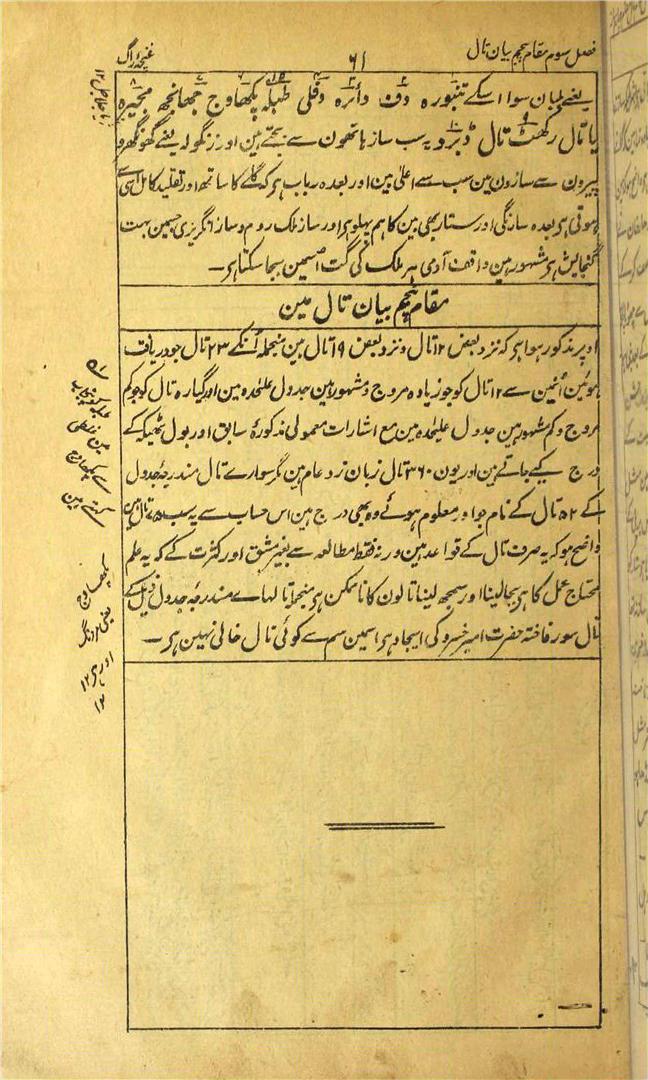 فصل سوم مقام پنجم بیان تال
۶۱
غنچۂ راگ
یعنے طبان سوا اسکے تنبورہ دف دائرہ دفلی طبلہ پکھاوج جھانجھ منجیرہ
یا تال رکھٹ تال ڈبرو یہ سب ساز ہاتھون سے بجتے ہین اور زنگولہ یعنے گھونگھرو
پیرون سے سازون مین سب سے اعلیٰ بین اور بعدہ رباب ہر کہ گلے کا ساتھ اور تقلید کامل اسی
ہوتی ہر بعدہ سارنگی اور ستار بھی بین کا ہم پہلو ہر اور ساز ملک روم و ساز انگریزی جسمین بہت
گنجایش ہر مشہور ہین واقف آدمی ہر ملک کی گت اسمین بجا سکتا ہر ـ
مقام پنجم بیان تال مین
اوپر مذکور ہوا ہر کہ نزد بعض ۱۲ تال و نزد بعض ۱۹ تال ہین منجملہ اُنکے ۲۳ تال جو دریافت
ہوئین اُنمین سے ۱۲ تال کو جو زیادہ مروج و مشہور ہین جدول علیٰحدہ مین اور گیارہ تال کو جو کم
مروج و کم مشہور ہین جدول علیٰحدہ مین مع اشارات معمولی مذکورۂ سابق اور بول ٹھیکہ کے
درج کیے جاتے ہین اور یون ۳۶۰ تال زبان زد عام ہین مگر سوارے تال مندرجۂ جدول
کے ۵۲ تال کے نام جو اور معلوم ہوئے وہ بھی درج ہین اس حساب سے یہ سب ۷۵ تال ہین
واضح ہو کہ یہ صرف تال کے قواعد ہین ورنہ فقط مطالعہ سے بغیر مشق اور کثرت کے کہ یہ علم
محتاج عمل کا ہر بجا لینا اور سمجھ لینا تالون کا ناممکن ہر منجملہ تالہاے مندرجۂ جدول ذیل کے
تال سور فاختہ حضرت امیر خسرو کی ایجاد ہر اسمین سم سے کوئی تال خالی نہین ہر ـ
پکھاوج
یعنی مردنگ
اور ہر ۱۲